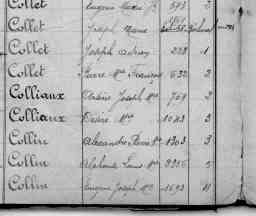 Collet Eugène Marie Jh 593 2
Collet Joseph Marie
Collet Joseph 228 1
Collet Pierre Mie François 632 2
Colliaux Joseph Mie 769 2
Colliaux Désiré Mie 1043 3
Collin Alexandre Pierre Mie 1303 3
Collin Alphonse Louis Mie 2256 5
Collin Eugène Joseph Mie 1693 11